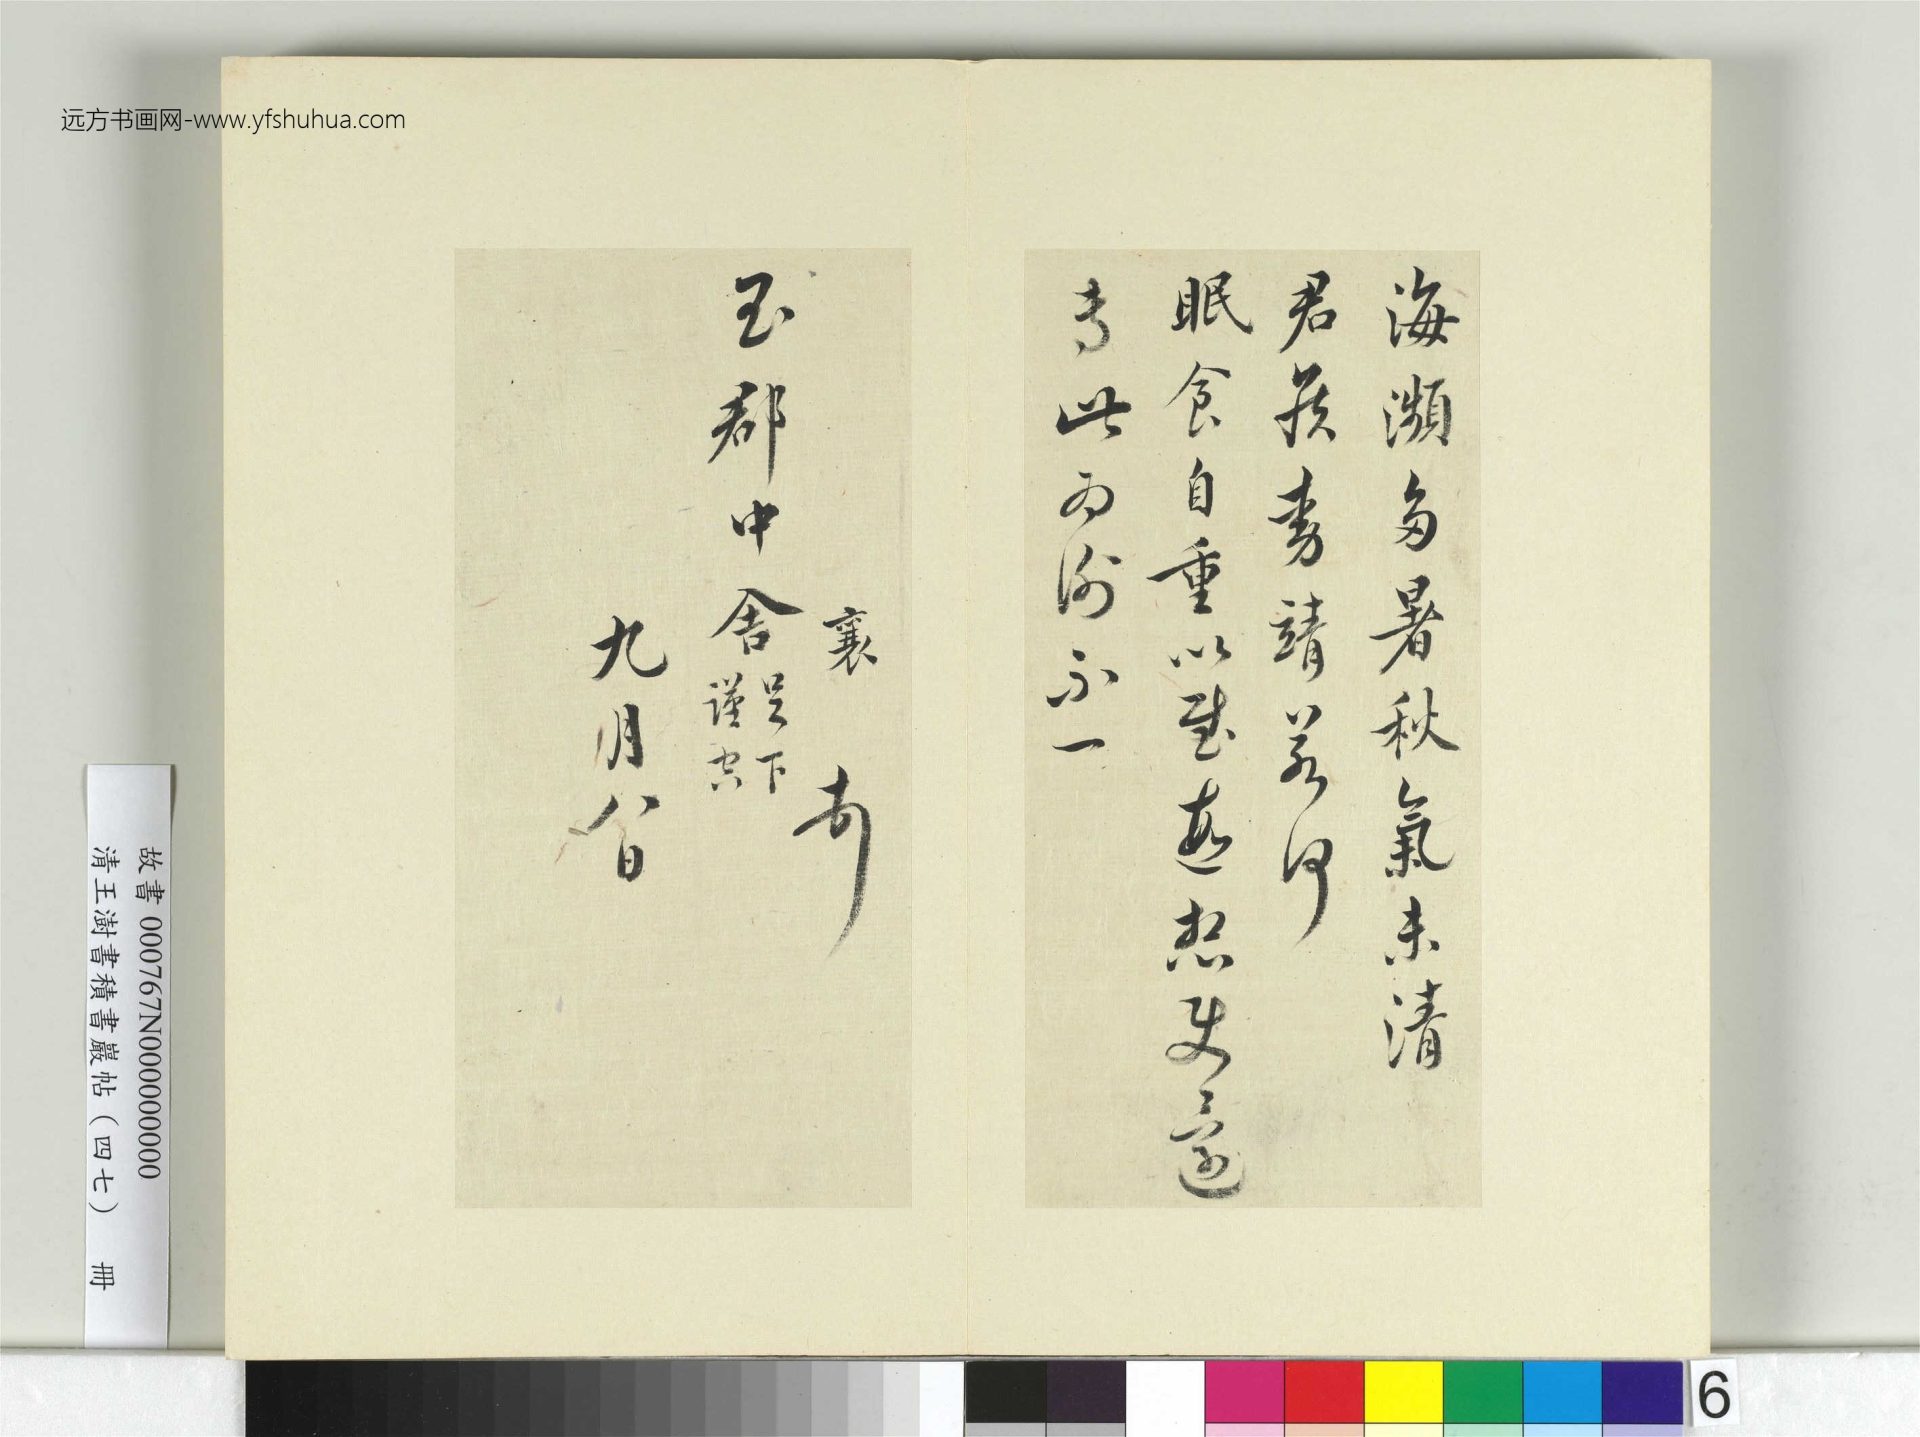 远方书画网-www.yfshuhua.com
海瀕多暑秋氣未清
君侯動靖若何
眠食自重以慰遐想使還
專此為謝不一
襄
郡中舍足下
謹空
九月八日
故書 000767N000000000
清王澍書積書巖帖（四七） 冊
6